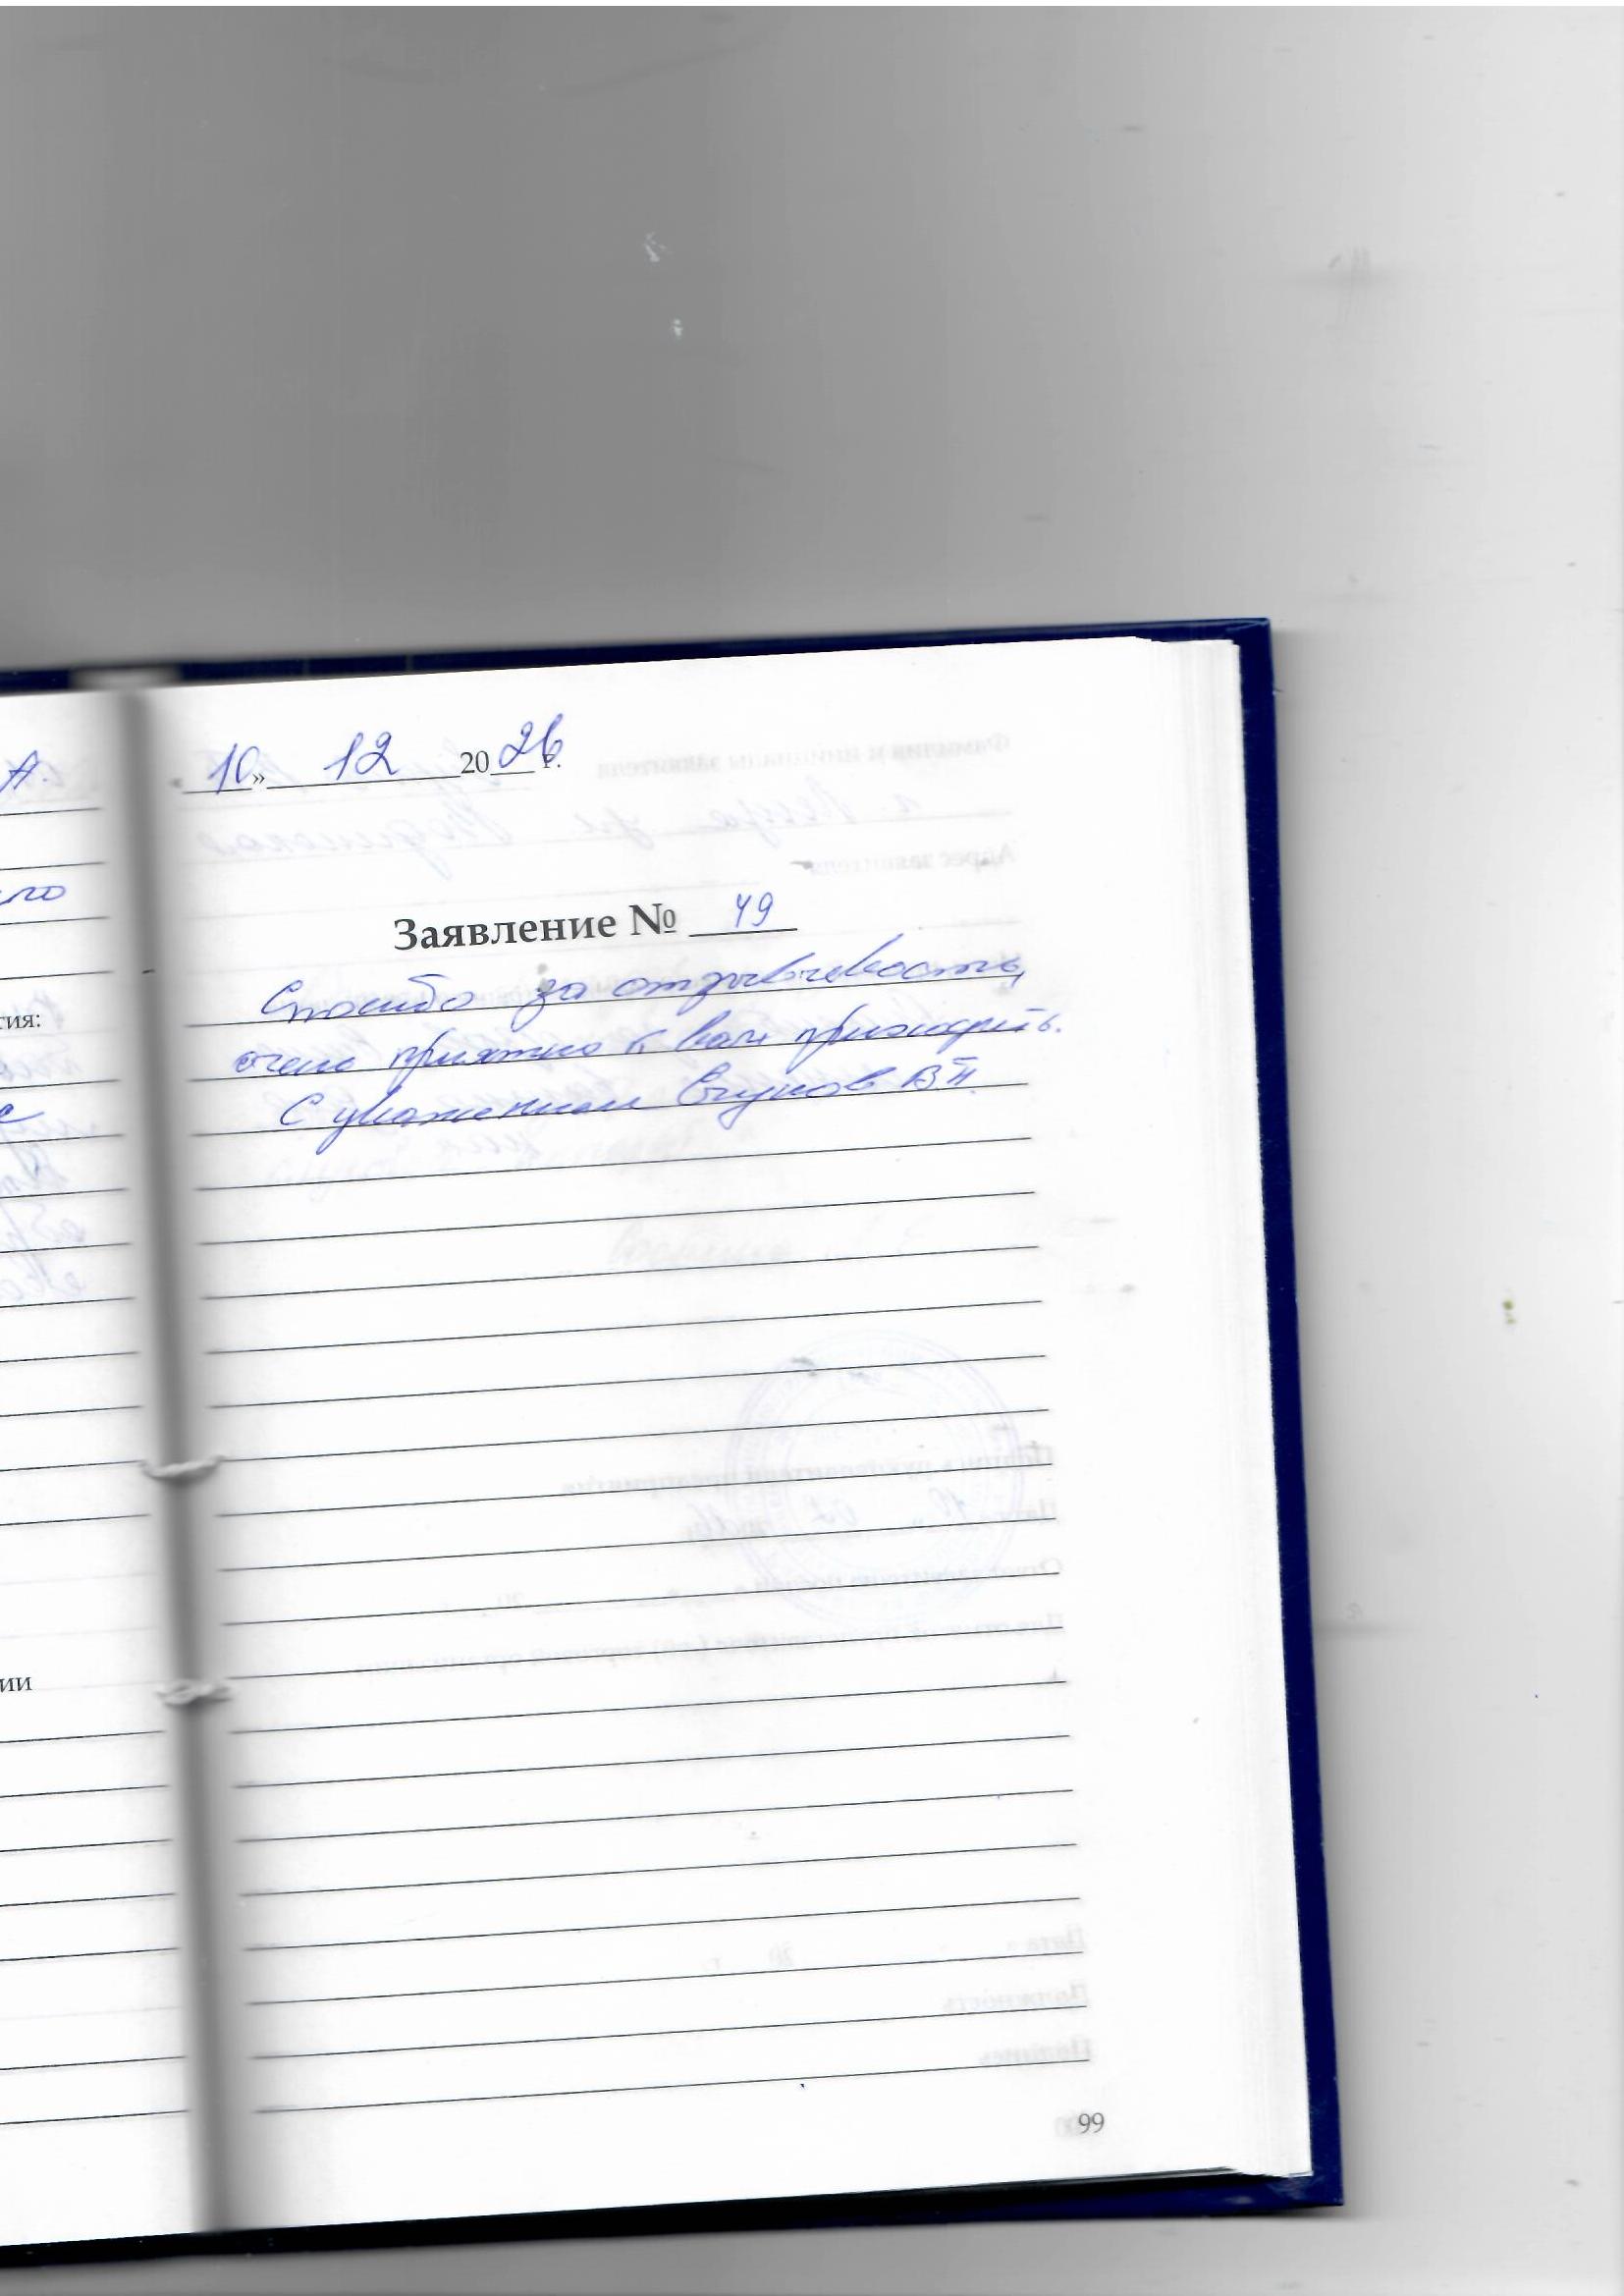 А.
10» 12 2026 г.
Заявление № 49
Спасибо за отзывчивость,
очень приятно к вам приходить.
С уважением В.П.
тия:
ии
99